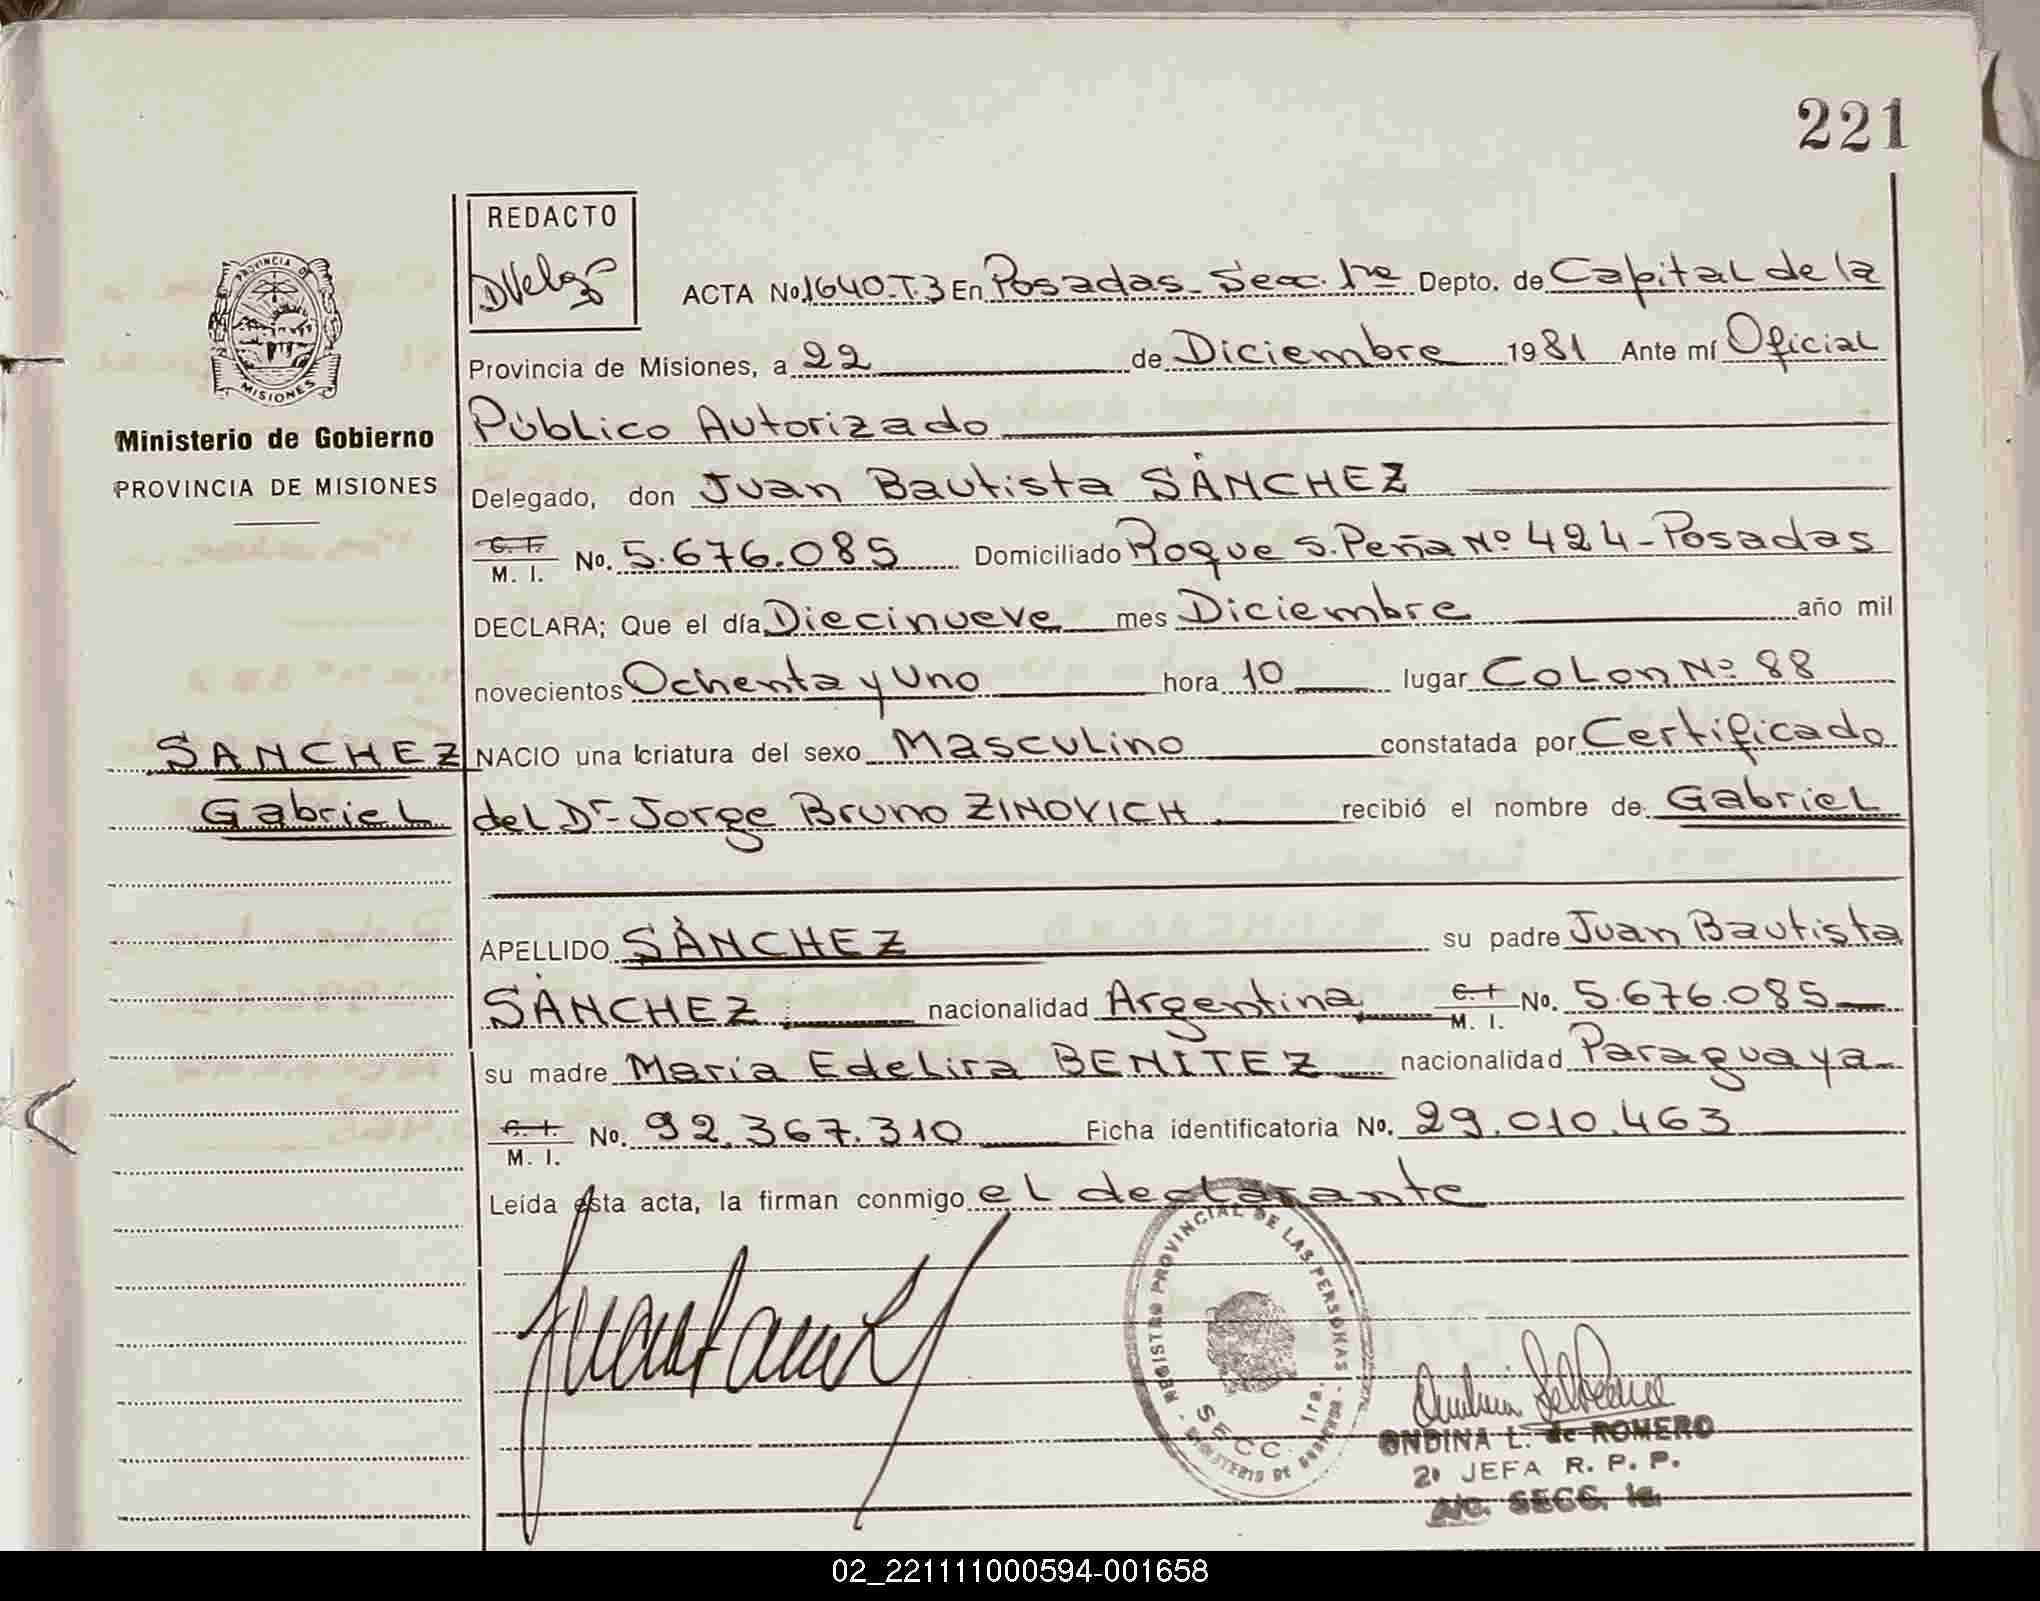 221
REDACTO
PROVINCIA DE
MISIONES
ACTA No.1640-T.3 En Posadas - Secc. 1ra Depto. de Capital de la
Provincia de Misiones, a 22 de Diciembre 1981 Ante mí Oficial
Ministerio de Gobierno
Público Autorizado
PROVINCIA DE MISIONES
Delegado, don Juan Bautista SÁNCHEZ
C. I.
M. I. No. 5.676.085 Domiciliado Roque S. Peña Nº 424 - Posadas
DECLARA; Que el día Diecinueve mes Diciembre año mil
novecientos Ochenta y Uno hora 10 lugar Colon Nº 88
SANCHEZ
NACIO una criatura del sexo Masculino constatada por Certificado
Gabriel
del Dr. Jorge Bruno ZINOVICH recibió el nombre de: Gabriel
APELLIDO SÁNCHEZ su padre Juan Bautista
SÁNCHEZ nacionalidad Argentina C. I. M. I. No. 5.676.085
su madre María Edelira BENÍTEZ nacionalidad Paraguaya
C. I.
M. I. No. 92.367.310 Ficha identificatoria No. 29.010.463
Leída esta acta, la firman conmigo el declarante
REGISTRO PROVINCIAL DE LAS PERSONAS
SECC. 1ra.
MINISTERIO DE GOBIERNO
ONDINA L. de ROMERO
2ª JEFA R. P. P.
A/C. SECC. 1a.
02_221111000594-001658